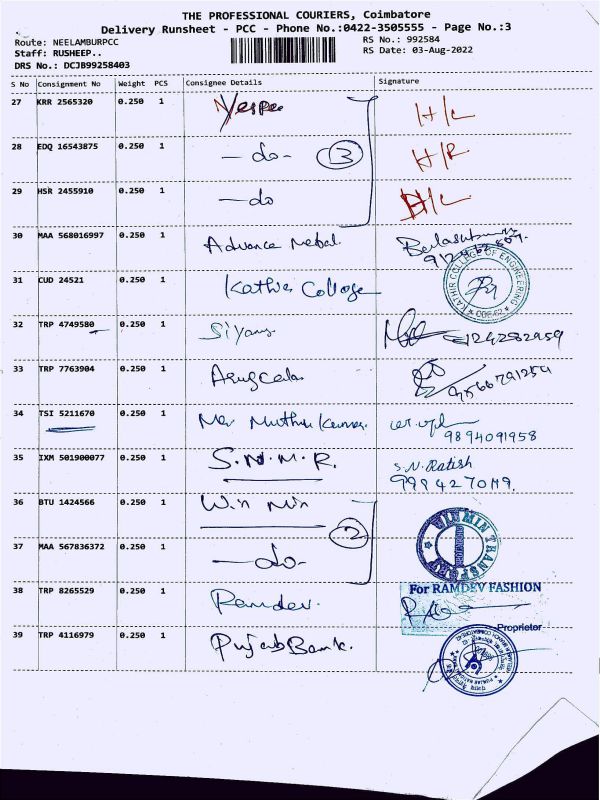 THE PROFESSIONAL COURIERS, Coimbatore
Delivery Runsheet - PCC - Phone No.:0422-3505555 - Page No.:3
Route: NEELAMBURPCC
RS No.: 992584
Staff: RUSHEEP..
RS Date: 03-Aug-2022
DRS No.: DCJB99258403
S No Consignment No Weight PCS Consignee Details Signature
27 KRR 2565320 0.250 1 H/L
28 EDQ 16543875 0.250 1 -do- 3 H/R
29 HSR 2455910 0.250 1 -do H/L
30 MAA 568016997 0.250 1 Advance Metal
31 CUD 24521 0.250 1 Kathir College KATHIR COLLEGE OF ENGINEERING
32 TRP 4749580 0.250 1
33 TRP 7763904 0.250 1 9566791259
34 TSI 5211670 0.250 1 Muthu Kumar 9894091958
35 IXM 501900077 0.250 1 S.N.M.R. S.N. Ratish
36 BTU 1424566 0.250 1 Win Min 2 WINMIN TRANSPORT
37 MAA 567836372 0.250 1 -do-
38 TRP 8265529 0.250 1 Ramdev. For RAMDEV FASHION
Proprietor
39 TRP 4116979 0.250 1 Punjab Bank.